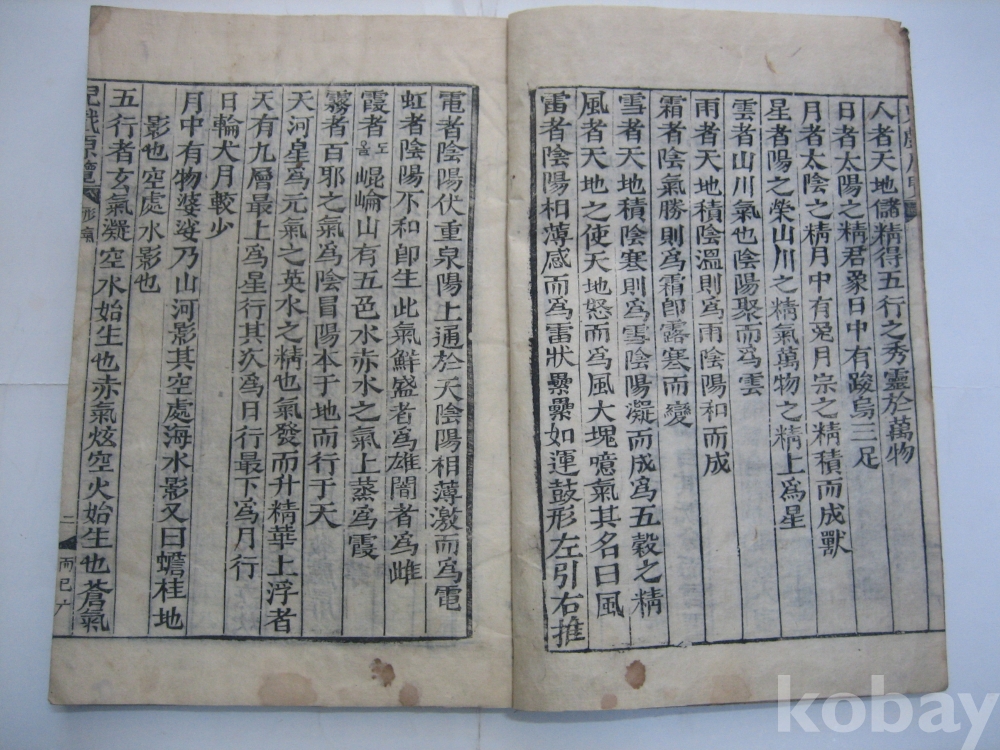 人者天地儲精得五行之秀靈於萬物
日者太陽之精君象日中有踆烏三足
月者太陰之精月中有兎月宗之精積而成獸
星者陽之榮山川之精氣萬物之精上爲星
雲者山川氣也陰陽聚而爲雲
雨者天地積陰溫則爲雨陰陽和而成
霜者陰氣勝則爲霜卽露寒而變
雪者天地積陰寒則爲雪陰陽凝而成爲五穀之精
風者天地之使天地怒而爲風大塊噫氣其名曰風
雷者陰陽相薄感而爲雷狀纍纍如運鼓形左引右推
電者陰陽伏重泉陽上通於天陰陽相薄激而爲電
虹者陰陽不和卽生此氣鮮盛者爲雄闇者爲雌
霞者노을崐崘山有五色水赤水之氣上蒸爲霞
霧者百邪之氣爲陰冒陽本于地而行于天
天河星爲元氣之英水之精也氣發而升精華上浮者
天有九層最上爲星行其次爲日行最下爲月行
日輪大月較少
月中有物婆娑乃山河影其空處海水影又曰蟾桂地
影也空處水影也
五行者玄氣凝空水始生也赤氣炫空火始生也蒼氣
二
kobay